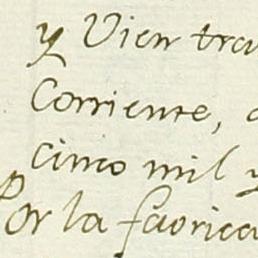 y Vien tra
Corriente, a
cinco mil y
Por la favrica